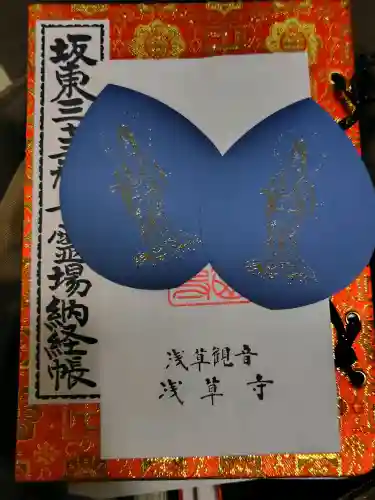 坂東三十三所
霊場納経帳
浅草観音
浅草寺